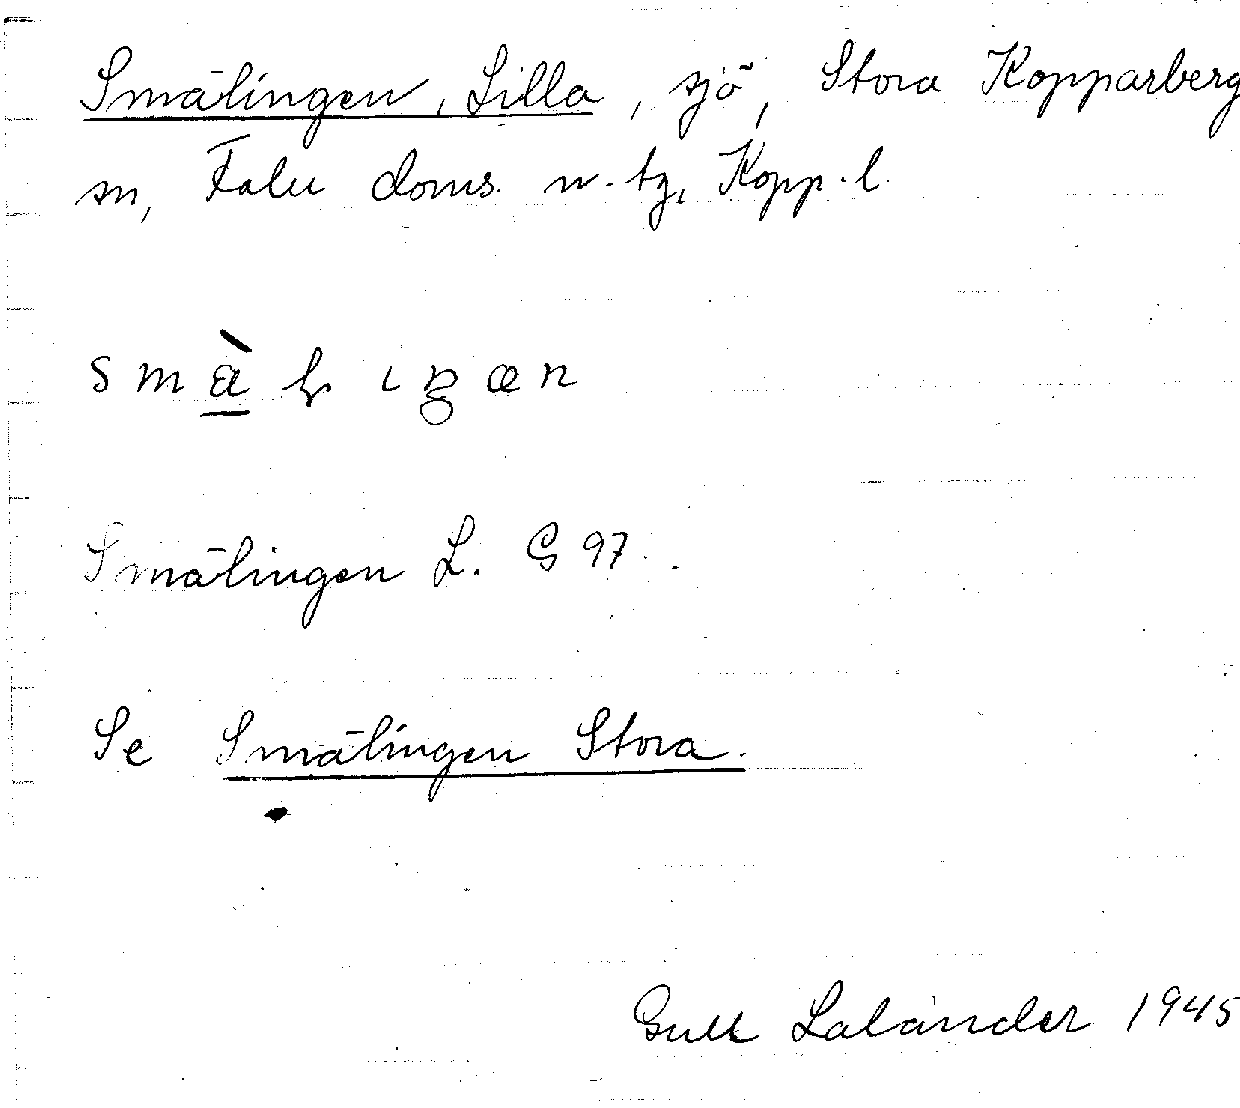 Smälingen, Lilla, sjö, Stora Kopparberg
sn, Falu doms. n. tg, Kopp. l.
Smälingen L. G 97.
Se Smälingen Stora.
Gull Laländer 1945